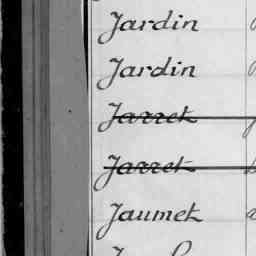 Jardin
Jardin
Jarret
Jarret
Jaumet